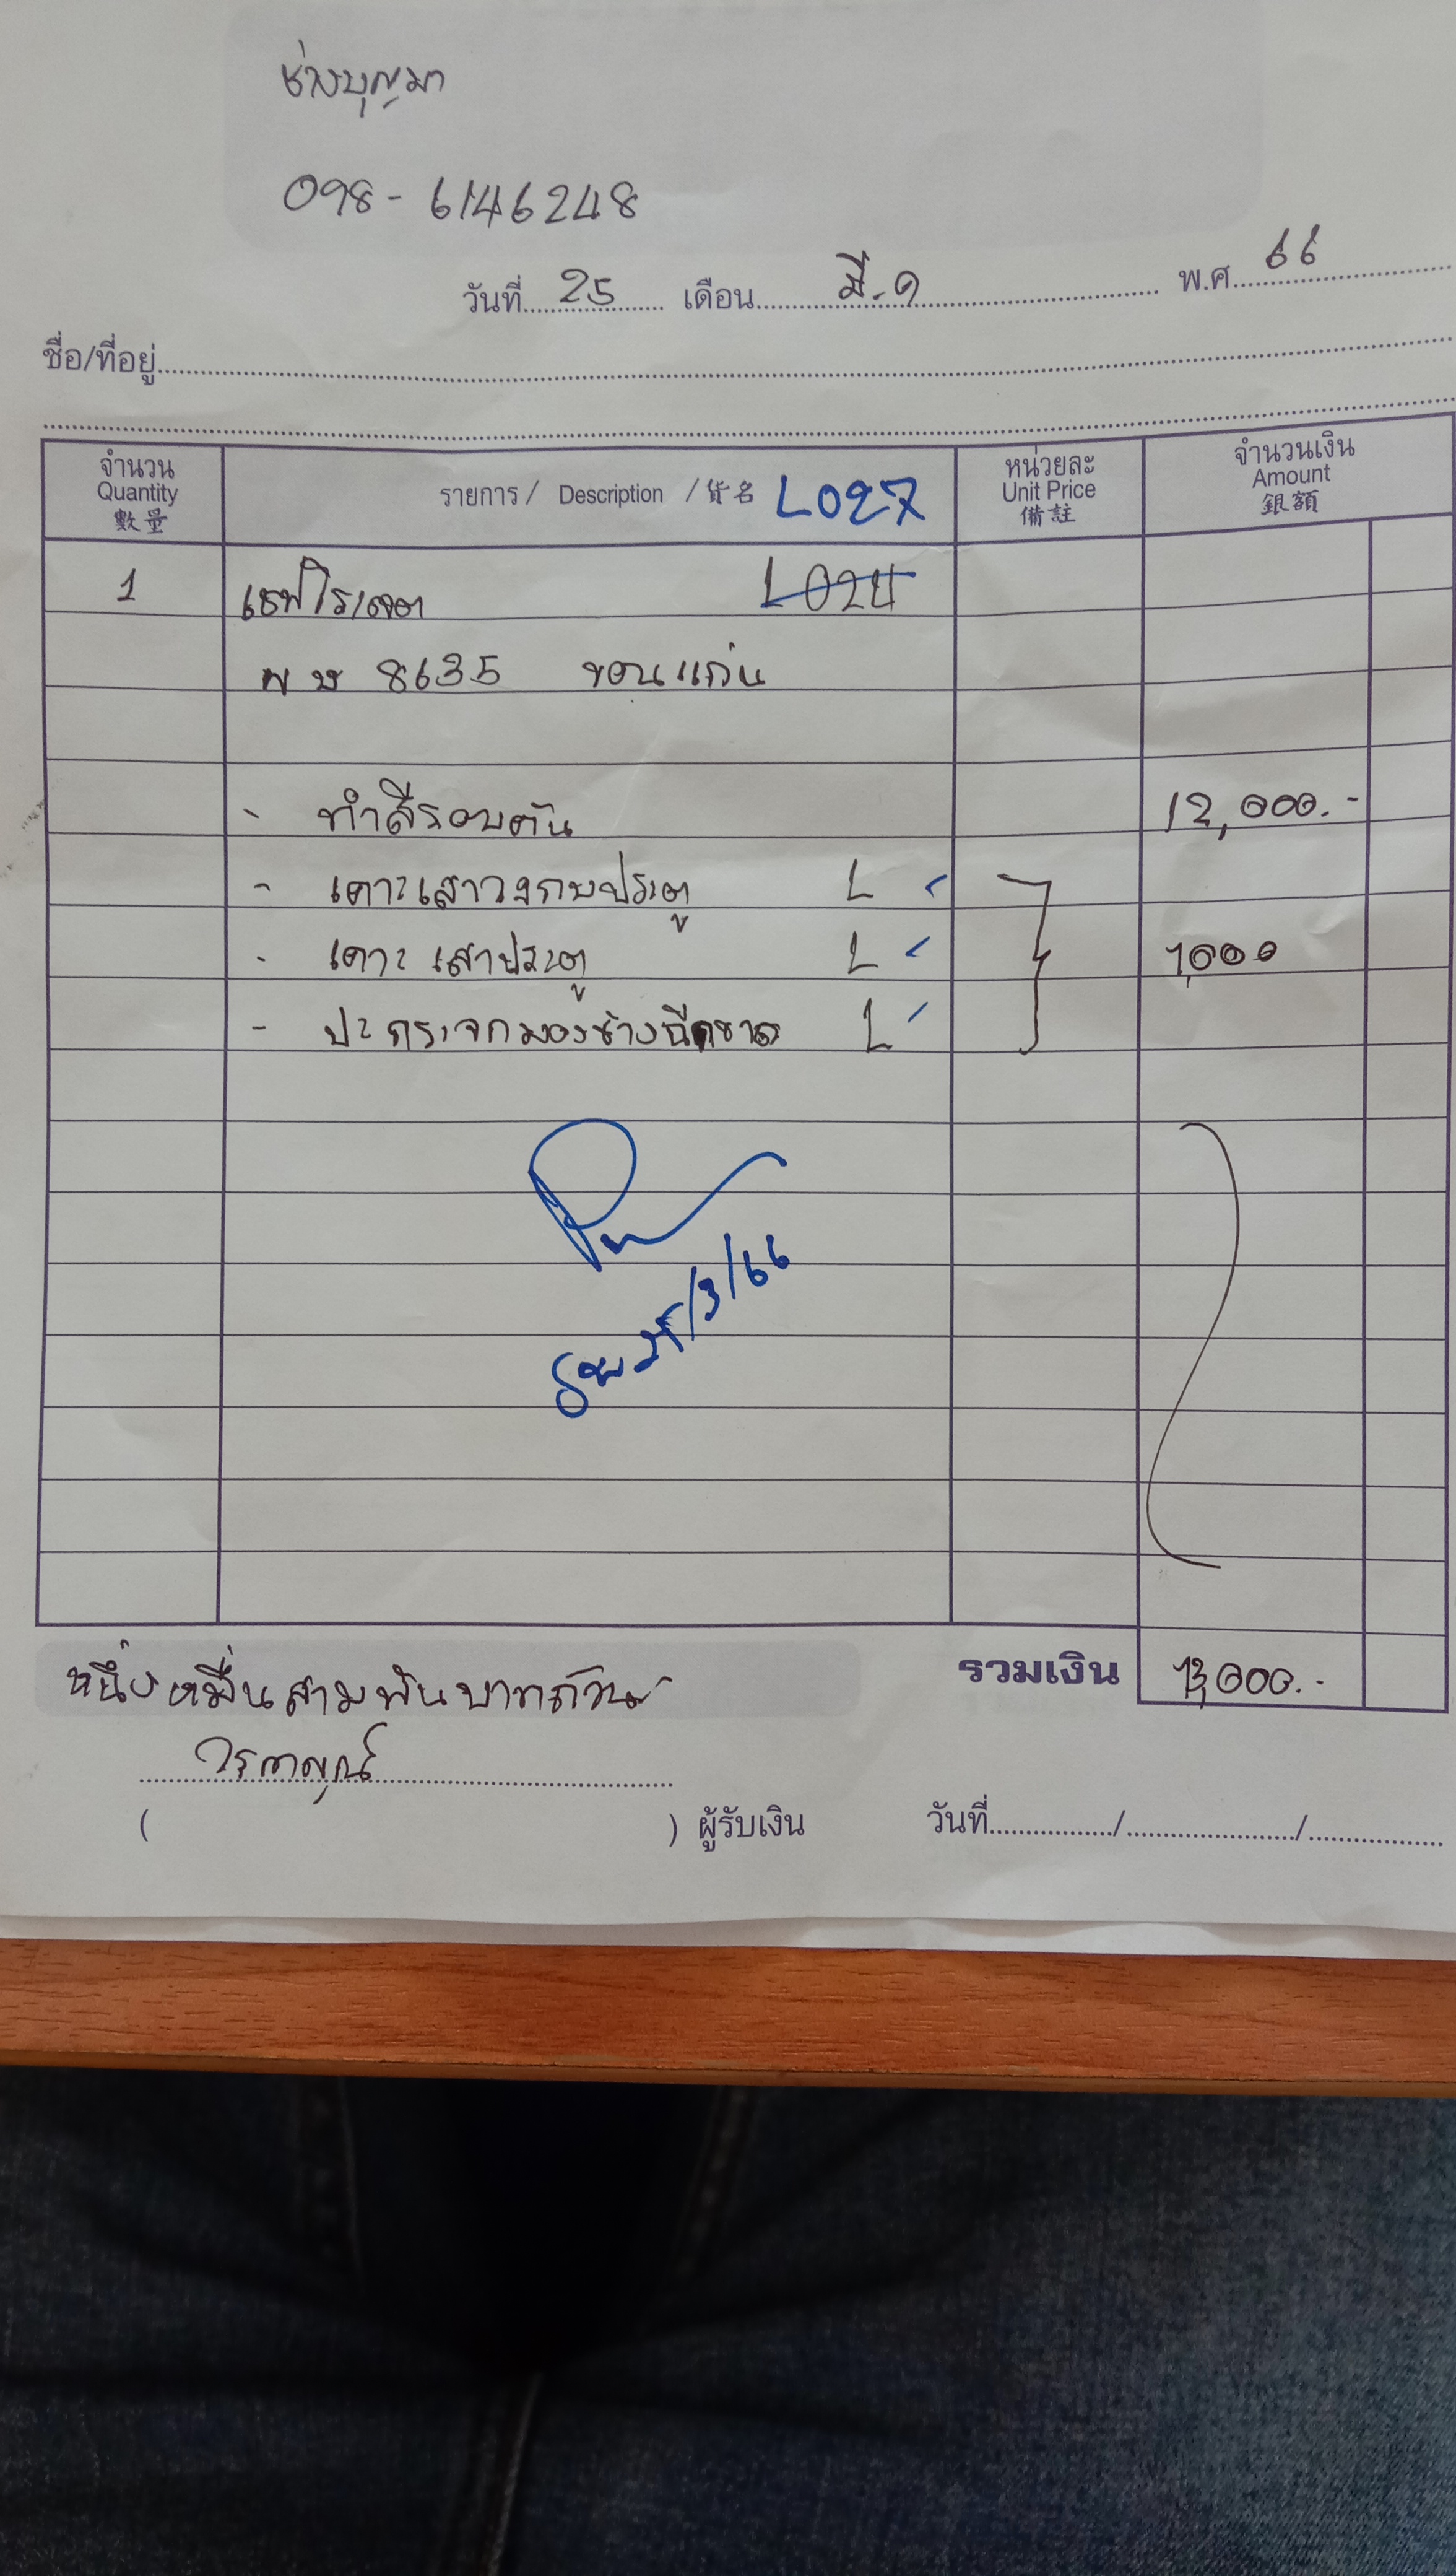 ช่างบุญมา
098-6146248
วันที่ 25 เดือน มี.ค พ.ศ. 66
ชื่อ/ที่อยู่
จำนวน Quantity 數量 รายการ / Description / 貨名 L027 หน่วยละ Unit Price 備註 จำนวนเงิน Amount 銀額
1 เชฟโรเลต L024
8635 ขอนแก่น
- ทำสีรอบตัน 12,000.-
- เคาะเสาวงกบประตู L
- เคาะ เสาประตู L 1,000
- ปะกระจกมองข้างฉีกขาด L
25/3/66
หนึ่งหมื่นสามพันบาทถ้วน รวมเงิน 13,000.-
( ) ผู้รับเงิน วันที่ / /